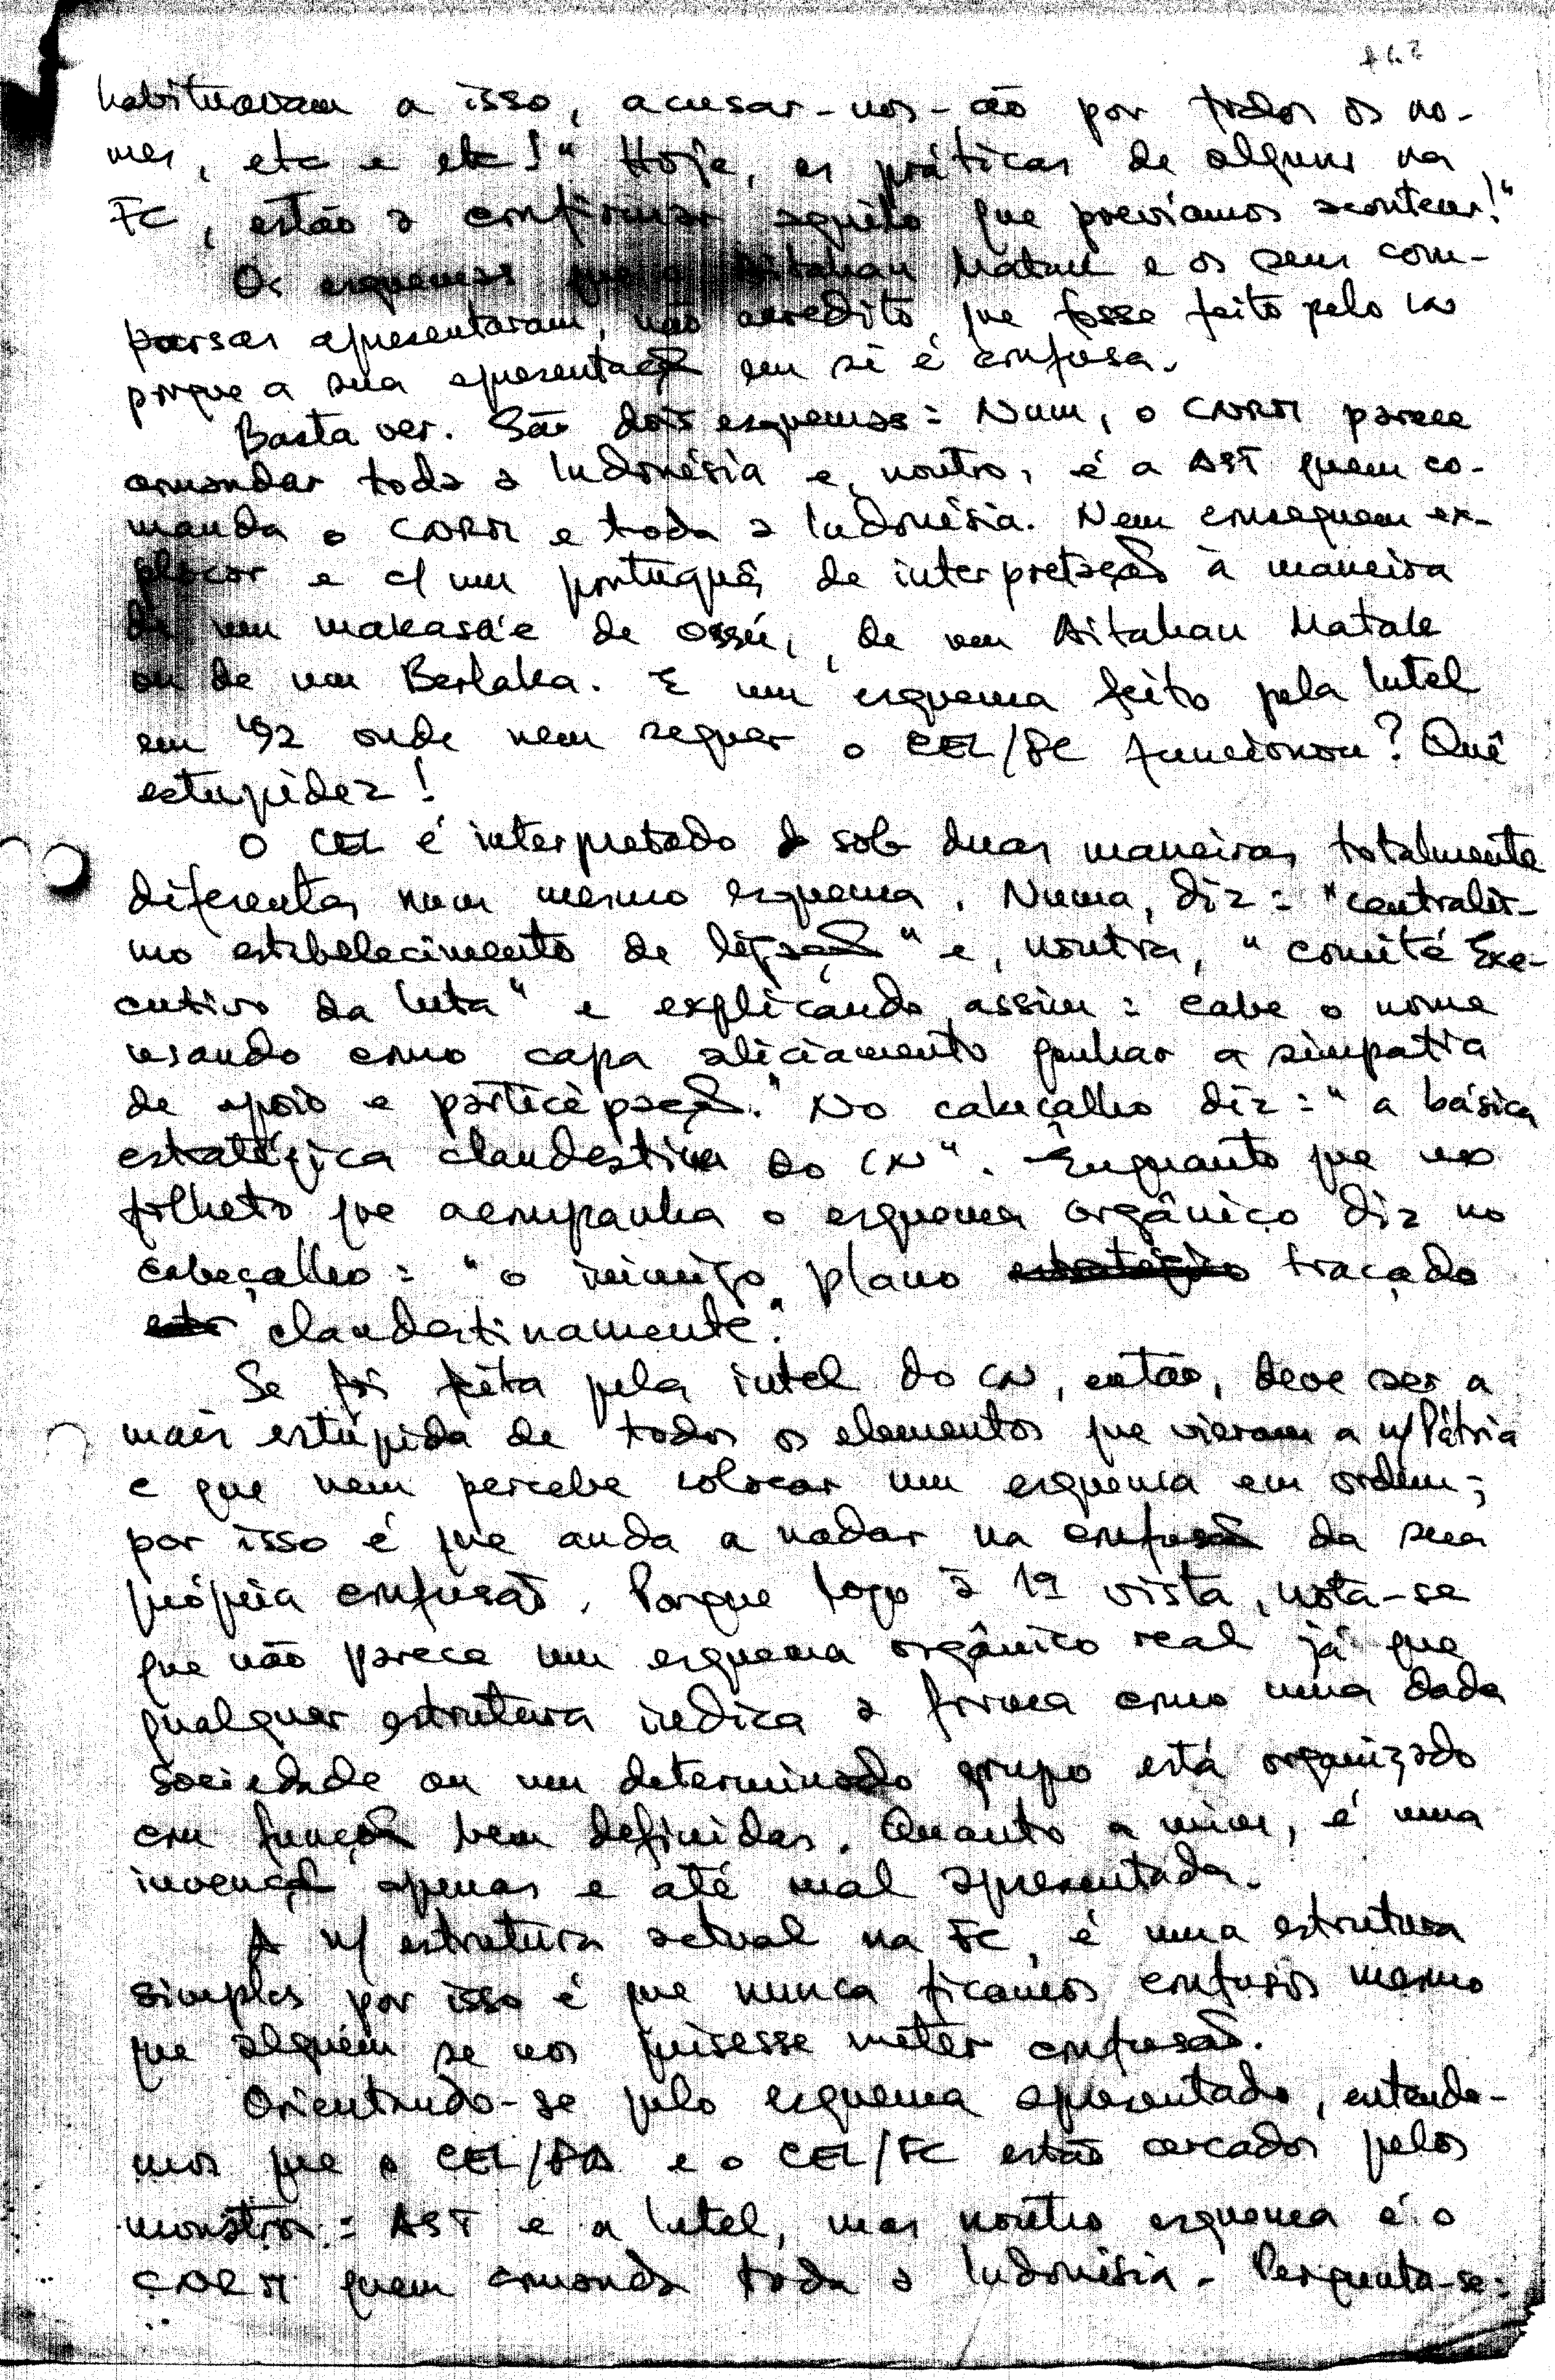 habituavam a isso, acusar-nos-ão por todos os no-
mes, etc e etc!" Hoje, as práticas de alguns na
FC, estão a confirmar aquilo que previamos acontecer!"
Os esquemas que o Aitahan Matak e os seus com-
parsas apresentaram, não acredito que fosse feito pelo in
porque a sua apresentação em si é confusa.
Basta ver. São dois esquemas: Num, o CNRM parece
comandar toda a Indonésia e, noutro, é a AST quem co-
manda o CNRM e toda a Indonésia. Nem conseguem ex-
plicar e c/ um português de interpretação à maneira
de um makasa'e de Ossú, de um Aitahan Matak
ou de um Berlaka. E um esquema feito pela Intel
em '92 onde nem sequer o CEL/FC funcionou? Quê
estupidez!
O CEL é interpretado sob duas maneiras totalmente
diferentes num mesmo esquema. Numa, diz: "centralis-
mo estabelecimento de ligação" e, noutra, "comité Exe-
cutivo da luta" e explicando assim: cabe o nome
usando como capa aliciamento ganhar a simpatia
de apoio e participação." No cabeçalho diz: "a básica
estratégica clandestina do IN". Enquanto que no
folheto que acompanha o esquema orgânico diz no
cabeçalho: "o inimigo plano traçado
clandestinamente."
Se foi feita pela intel do IN, então, deve ser a
mais estúpida de todos os elementos que vieram a n/Pátria
e que nem percebe colocar um esquema em ordem;
por isso é que anda a nadar na confusão da sua
própria confusão. Porque logo à 1ª vista, nota-se
que não parece um esquema orgânico real já que
qualquer estrutura indica a forma como uma dada
sociedade ou um determinado grupo está organizado
com função bem definidas. Quanto a mim, é uma
invenção apenas e até mal apresentada.
A n/ estrutura actual na FC, é uma estrutura
simples por isso é que nunca ficamos confusos mesmo
que alguém se nos quisesse meter confusão.
Orientando-se pelo esquema apresentado, entende-
mos que o CEL/FA e o CEL/FC estão cercados pelos
monstros: AST e a Intel, mas noutro esquema é o
CNRM quem comanda toda a Indonésia. Pergunta-se: